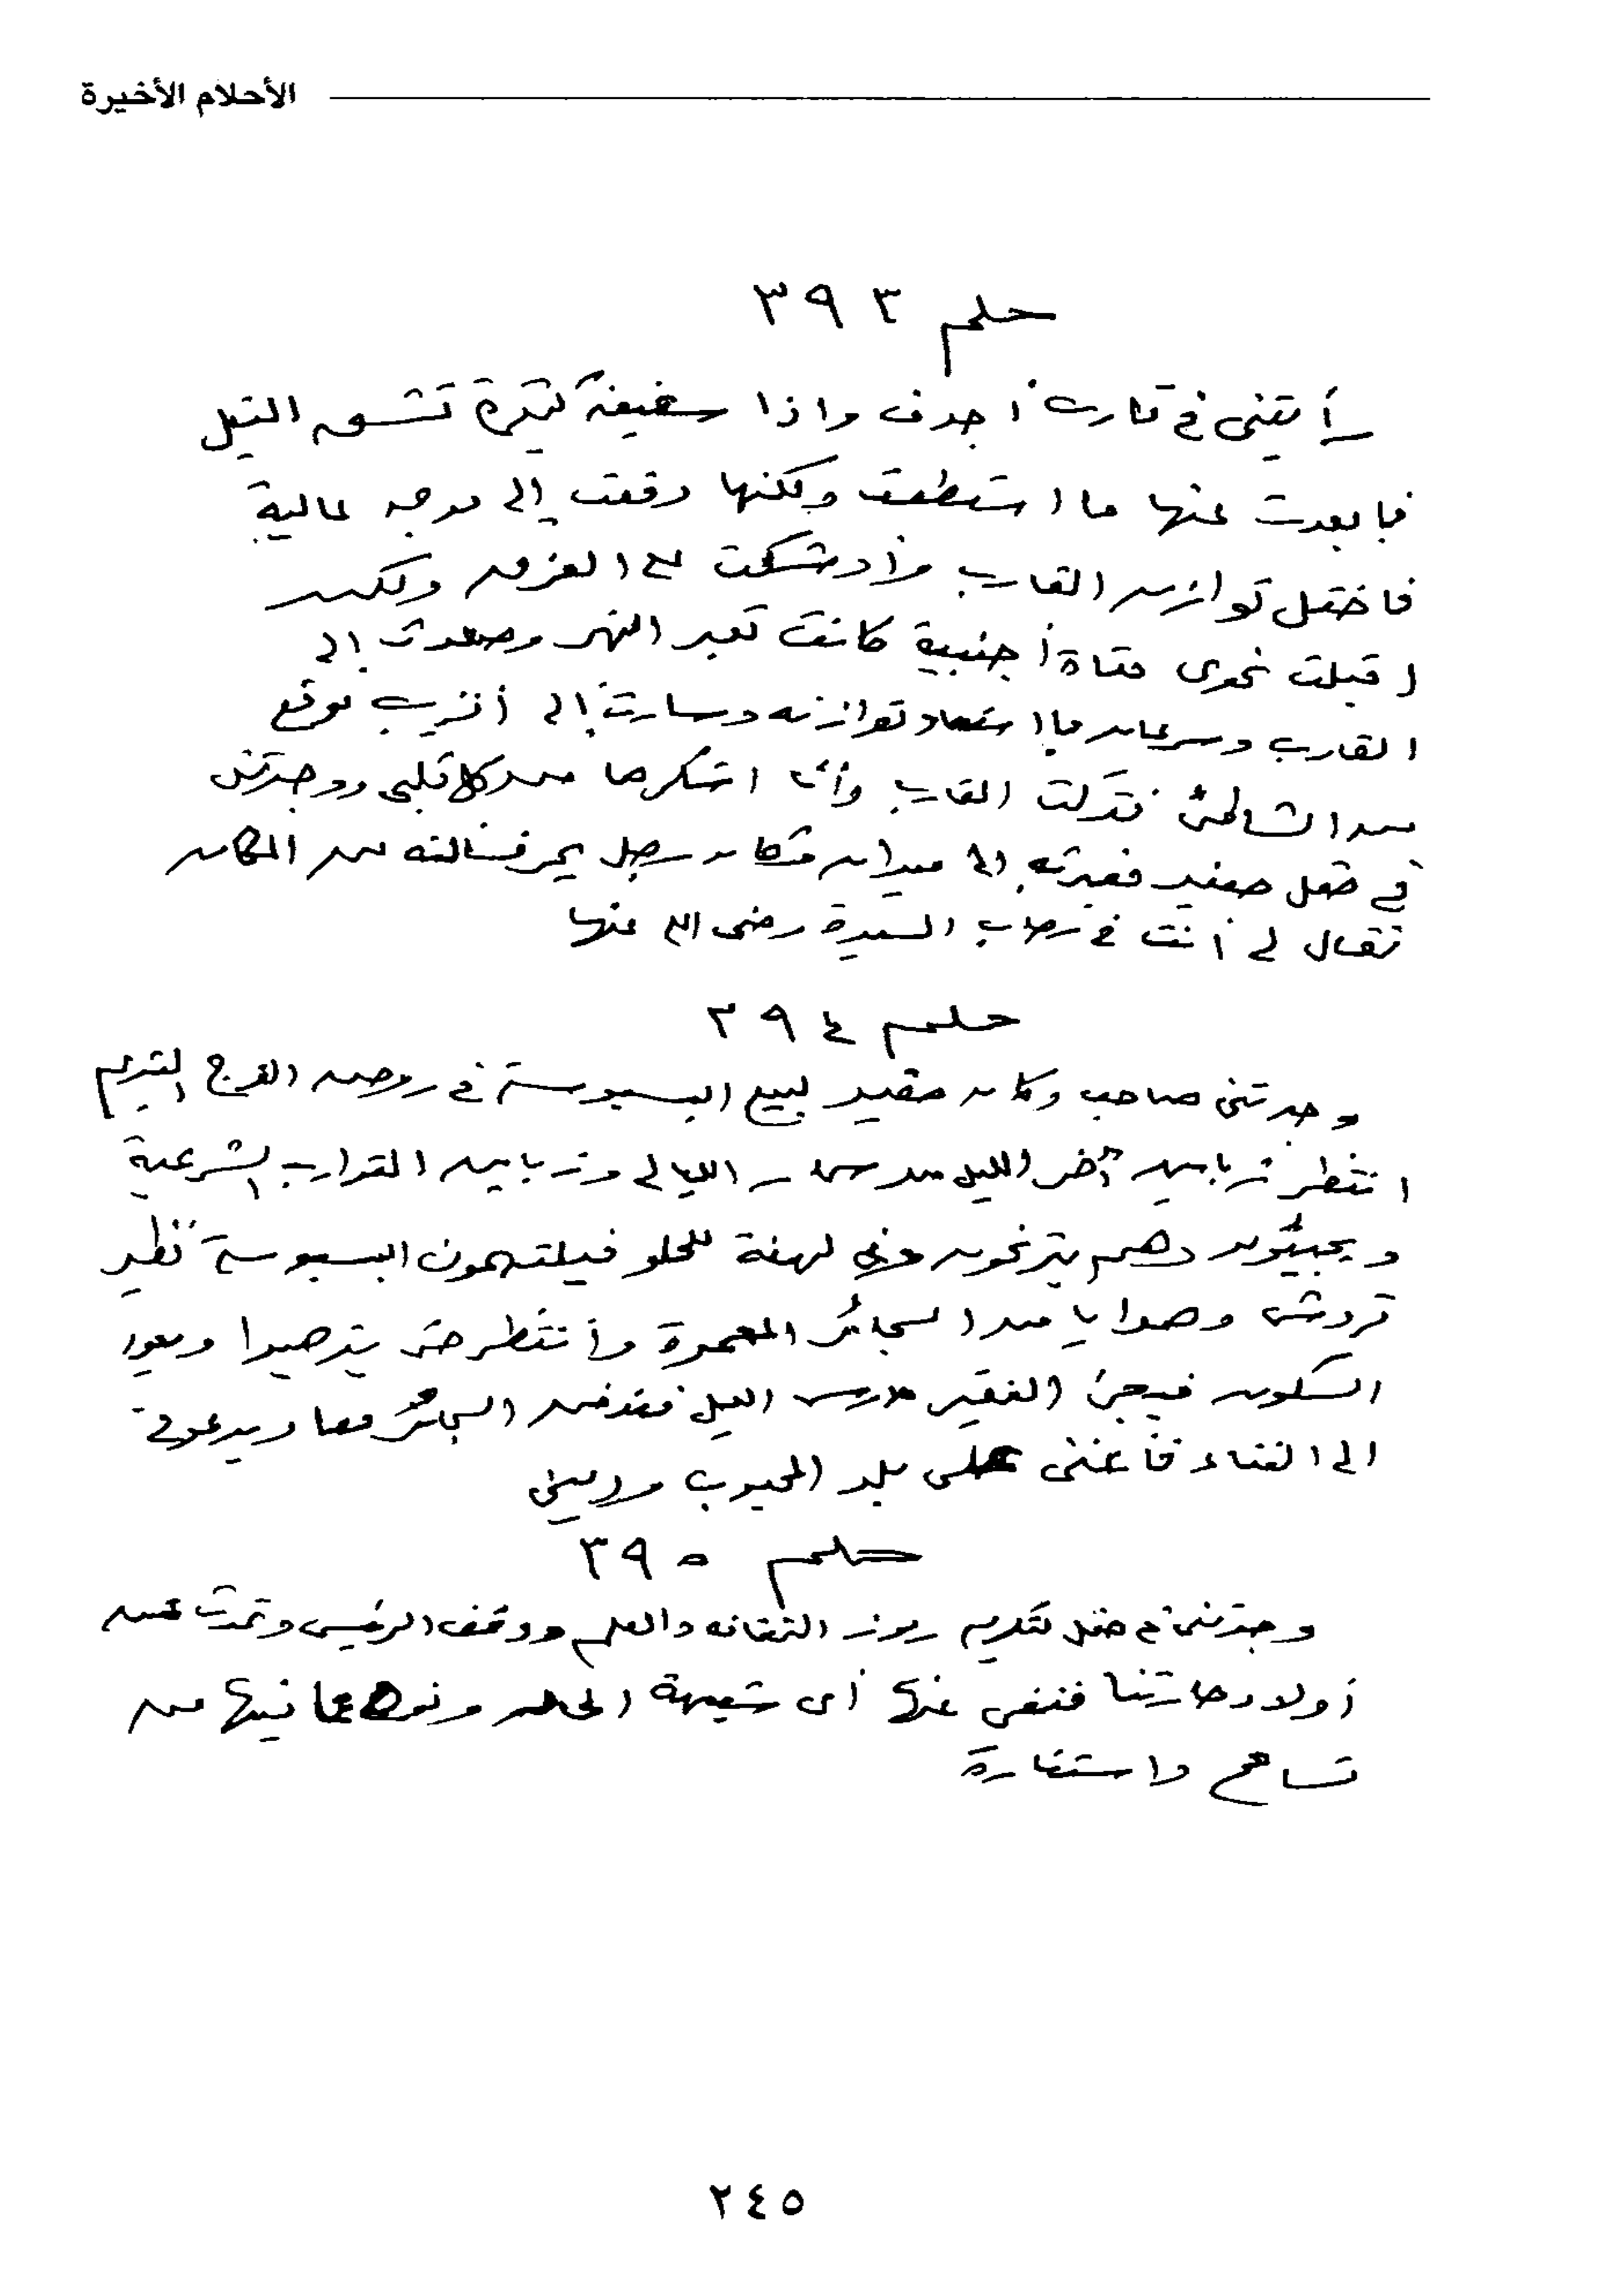 الأحلام الأخيرة
حلم ٣٩٣
رأيتنى فى قارب أجدف واذا سفينة كبيرة تشق النيل
فابعدت عنها ما استطعت ولكنها دفعت إلى موجة عالية
فاختل توازن القارب وأوشكت على الغرق ولكن
اقبلت نحوى فتاة أجنبية كانت تعبر النهر وصعدت إلى
القارب وسرعان ما استعاد توازنه وسارت إلى أقرب موقع
من الشاطئ فتركت القارب وأنا اشكرها من كل قلبى ووجدتنى
فى حقل صغير فعبرته إلى ميدان فكان رجل يمر فسألته عن المكان
فقال لى أنت فى رحاب السيدة رضى الله عنها
حلم ٣٩٤
وجدتنى صاحب دكان صغير لبيع البسبوسة فى روض الفرج القديم
انتظر زبائن آخر الليل من الليالى وزبائن القوارب الشرعية
ويجيئون وهم يترنحون وفى لهفة للحلو فيلتهمون البسبوسة نظير
قروش وهدايا من السجائر المعمرة وأنتظر حتى يذهبوا ويعود
السكون فيجئ الفقير حارس الليل فندخن السجائر معا ويدعونى
الى الغناء فأغنى على بلد المحبوب ودينى
حلم ٣٩٥
وجدتنى فى حفل لتكريم رموز الثقافة والعلم ووقف الرئيس وتحدث عن
أولاد حارتنا فنفى عنها أى شبهة الحاد ونوه بما فيها من
تسامح واستنارة
٢٤٥